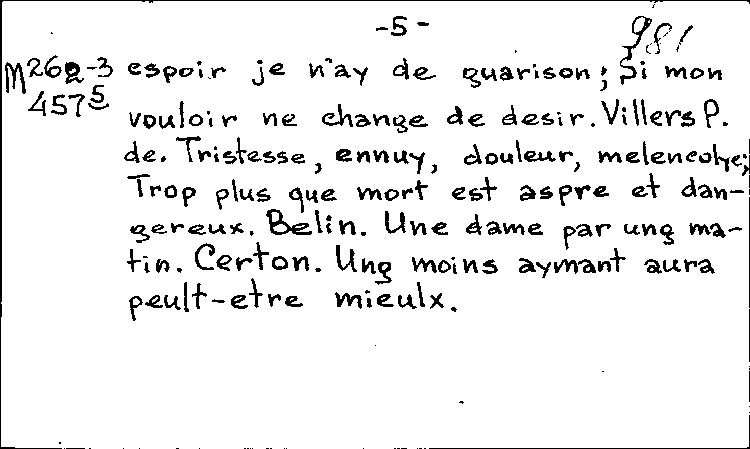 -5-
981
M262-3 espoir je n'ay de guarison; Si mon
4575 vouloir ne change de desir. Villers P.
de. Tristesse, ennuy, douleur, melencolye;
Trop plus que mort est aspre et dan-
gereux. Belin. Une dame par ung ma-
tin. Certon. Ung moins aymant aura
peult-etre mieulx.